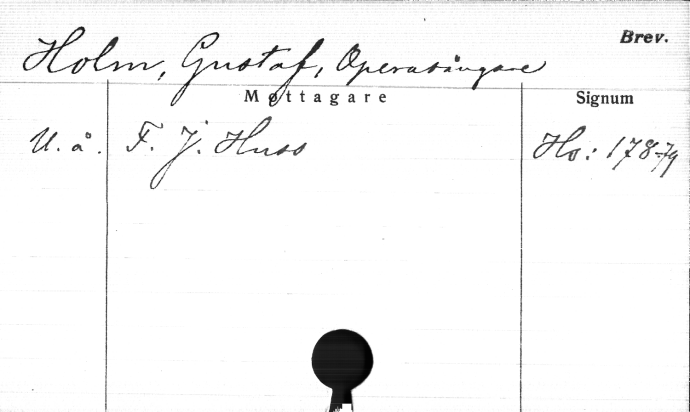 Brev.
Holm, Gustaf, Operasångare
Mottagare Signum
U. å. F. J. Huss Hs: 178-79